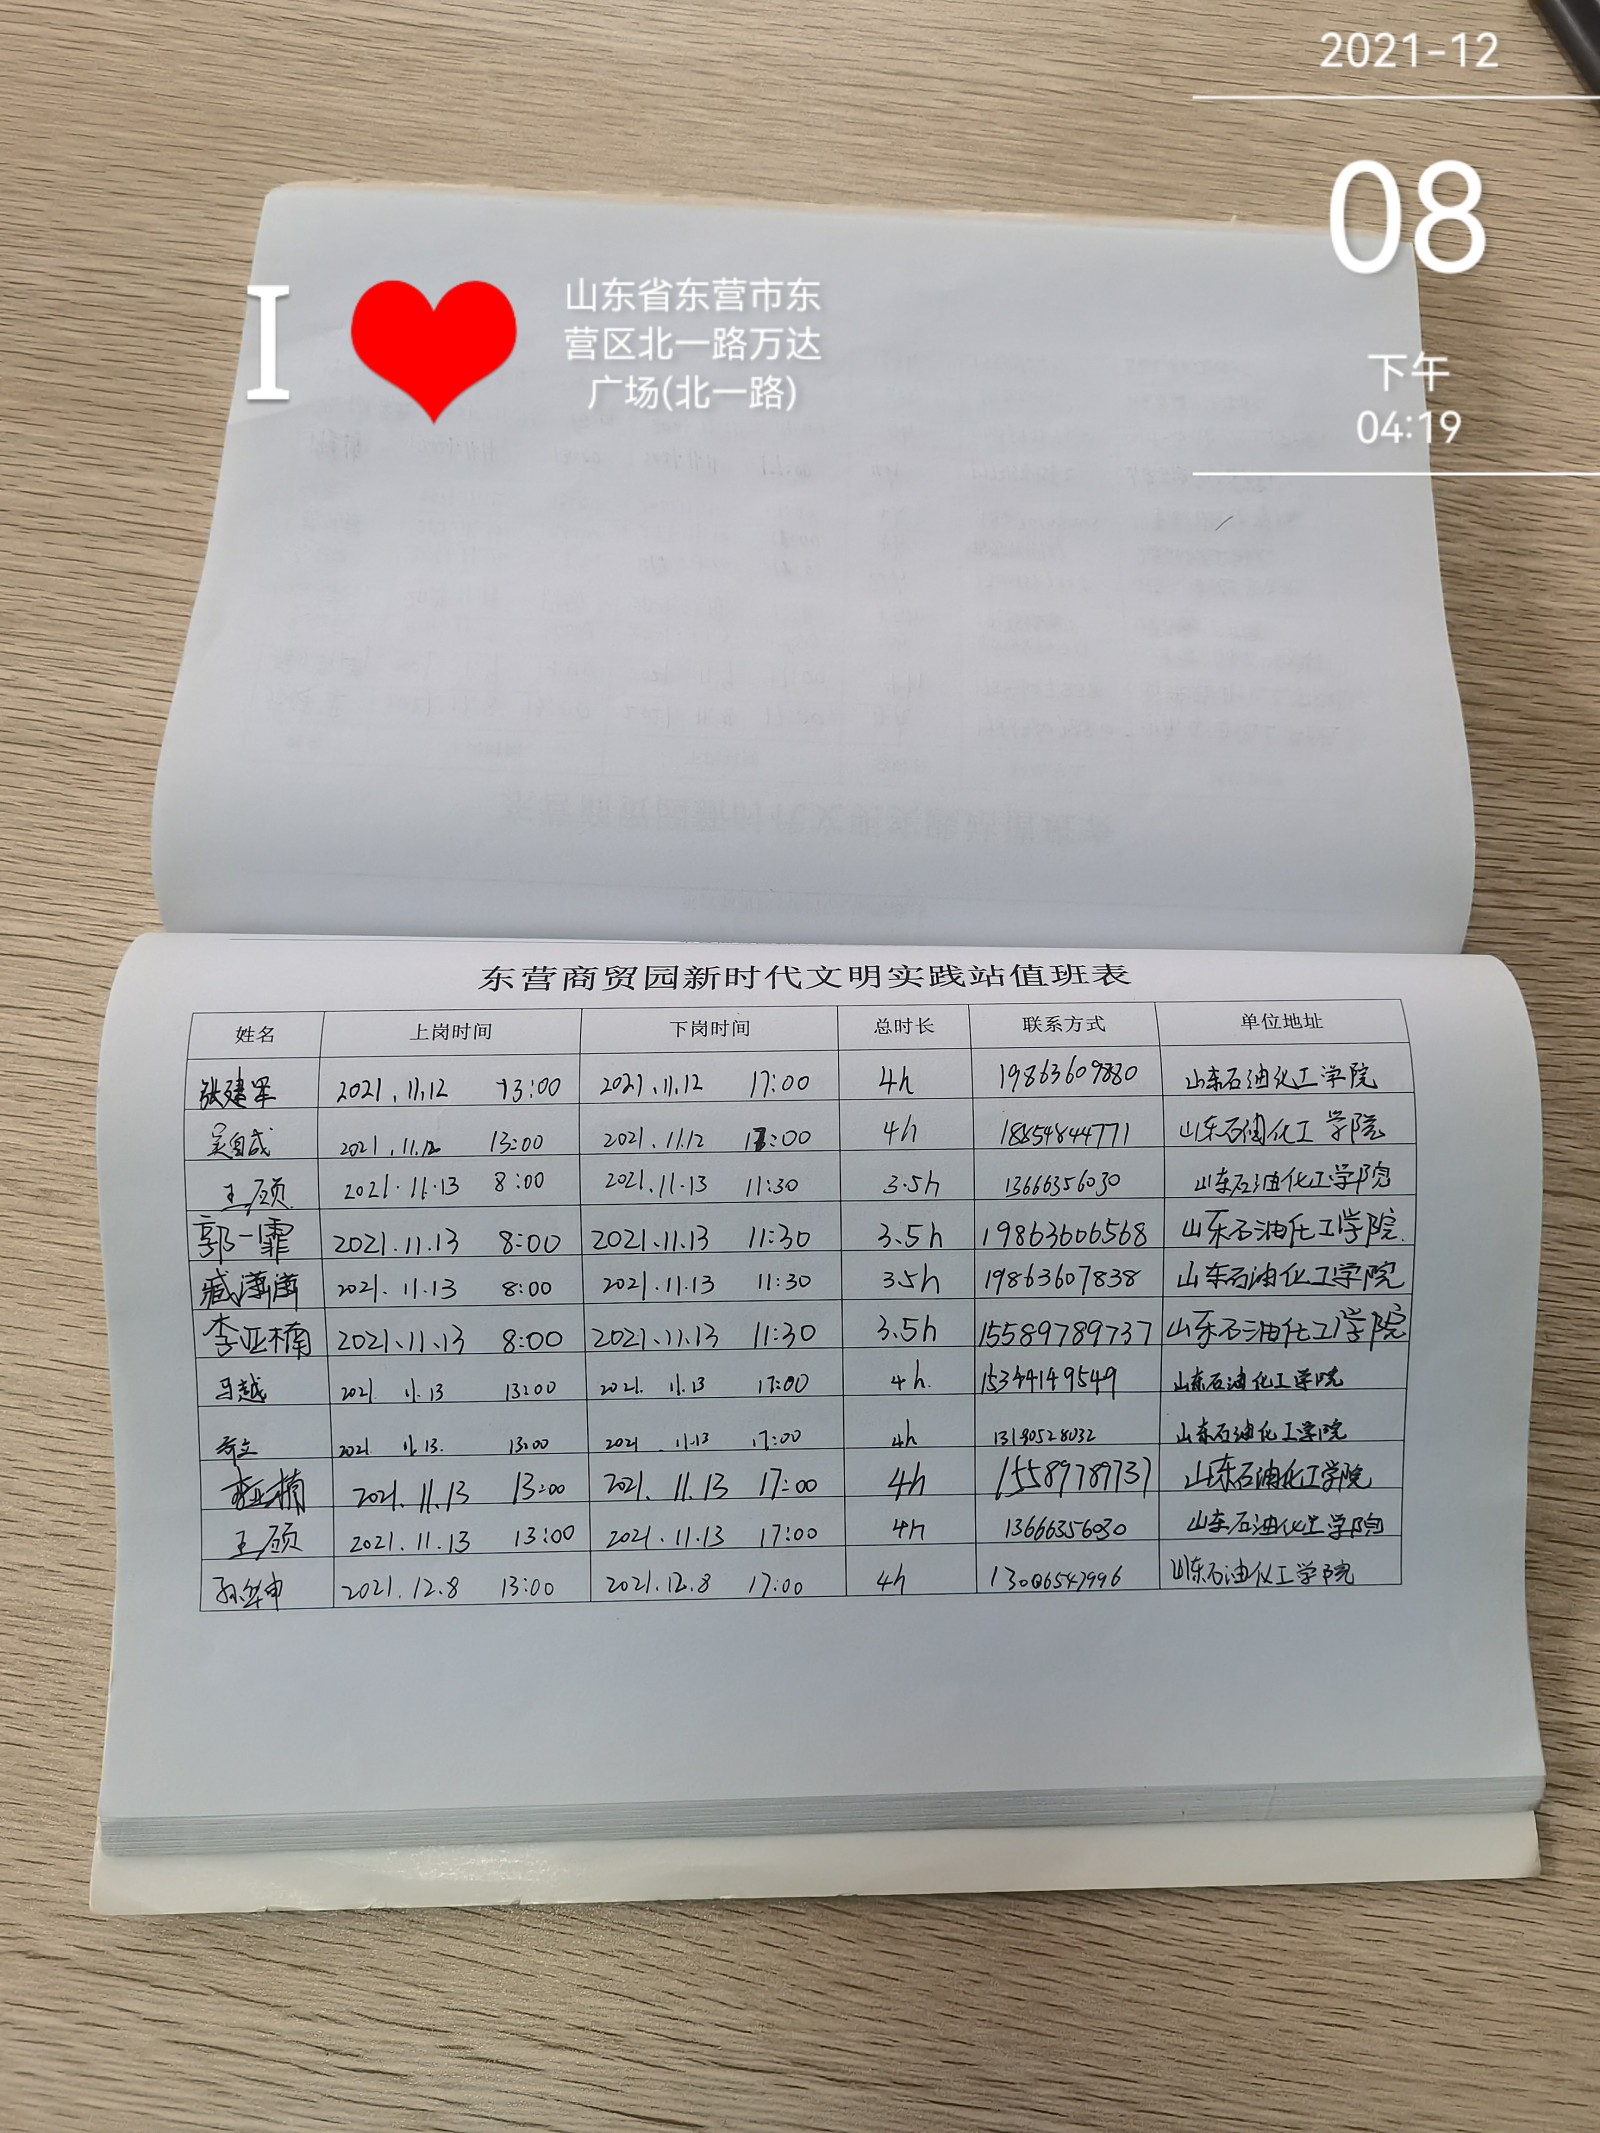 2021-12
08
下午
04:19
I
山东省东营市东
营区北一路万达
广场(北一路)
东营商贸园新时代文明实践站值班表
姓名 上岗时间 下岗时间 总时长 联系方式 单位地址
张建军 2021.11.12 13:00 2021.11.12 17:00 4h 19863609880 山东石油化工学院
吴自成 2021.11.12 13:00 2021.11.12 17:00 4h 18854844771 山东石油化工学院
王颀 2021.11.13 8:00 2021.11.13 11:30 3.5h 13666356030 山东石油化工学院
郭一霏 2021.11.13 8:00 2021.11.13 11:30 3.5h 19863606568 山东石油化工学院.
臧潇潇 2021.11.13 8:00 2021.11.13 11:30 3.5h 19863607838 山东石油化工学院
李亚楠 2021.11.13 8:00 2021.11.13 11:30 3.5h 15589789737 山东石油化工学院
马越 2021. 11.13 13:00 2021. 11.13 17:00 4h. 15344149549 山东石油化工学院
2021. 11.13. 13:00 2021 .11.13 17:00 4h 山东石油化工学院
李亚楠 2021.11.13 13:00 2021.11.13 17:00 4h 15589789737 山东石油化工学院
王颀 2021.11.13 13:00 2021.11.13 17:00 4h 13666356030 山东石油化工学院
孙华申 2021.12.8 13:00 2021.12.8 17:00 4h 山东石油化工学院